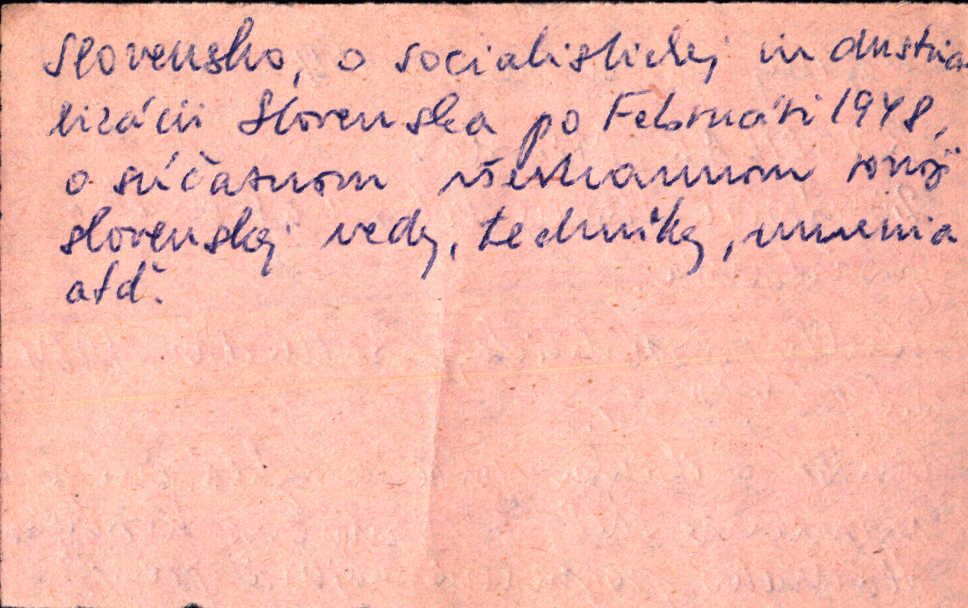 Slovensko, o socialistickej industria-
lizácii Slovenska po Februári 1948,
o súčasnom všestrannom rozvoji
slovenskej vedy, techniky, umenia
atď.